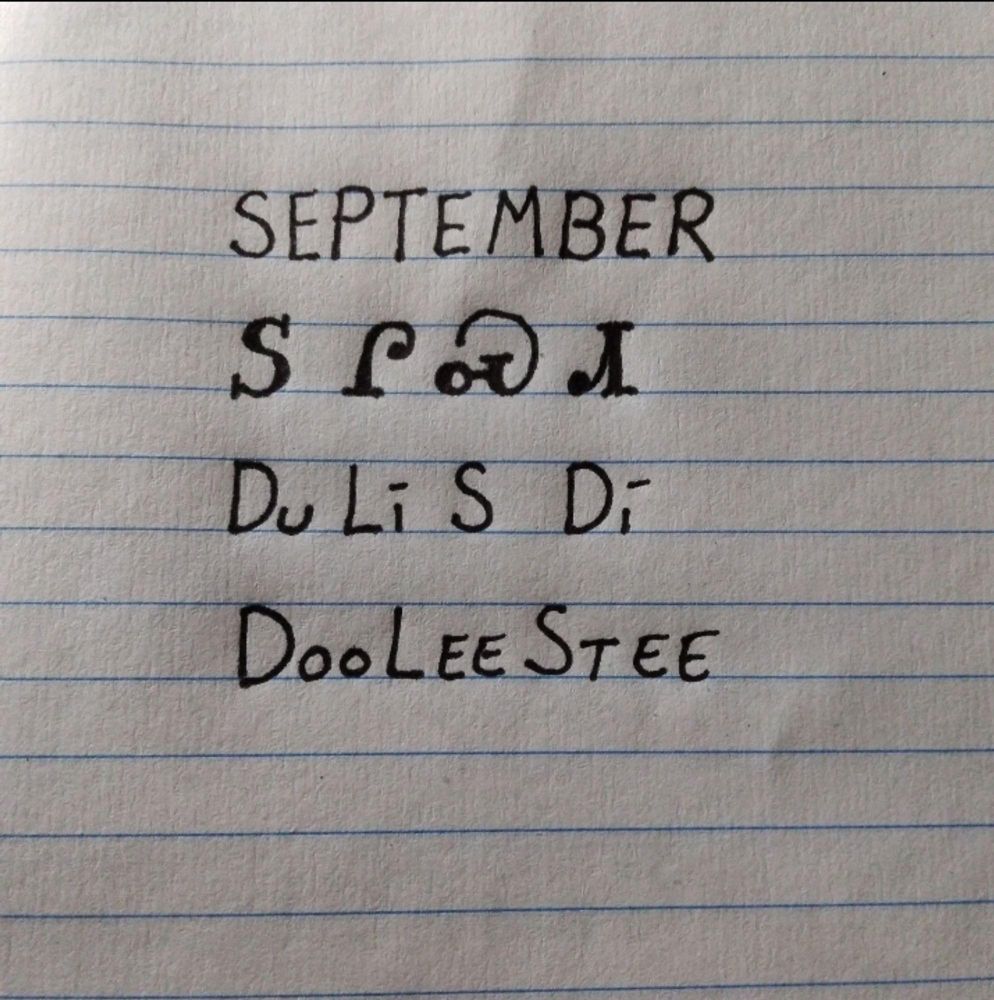 SEPTEMBER
Ꮪ Ꮅ Ꮝ Ꮧ
Du Li S Di
DooLEESTEE